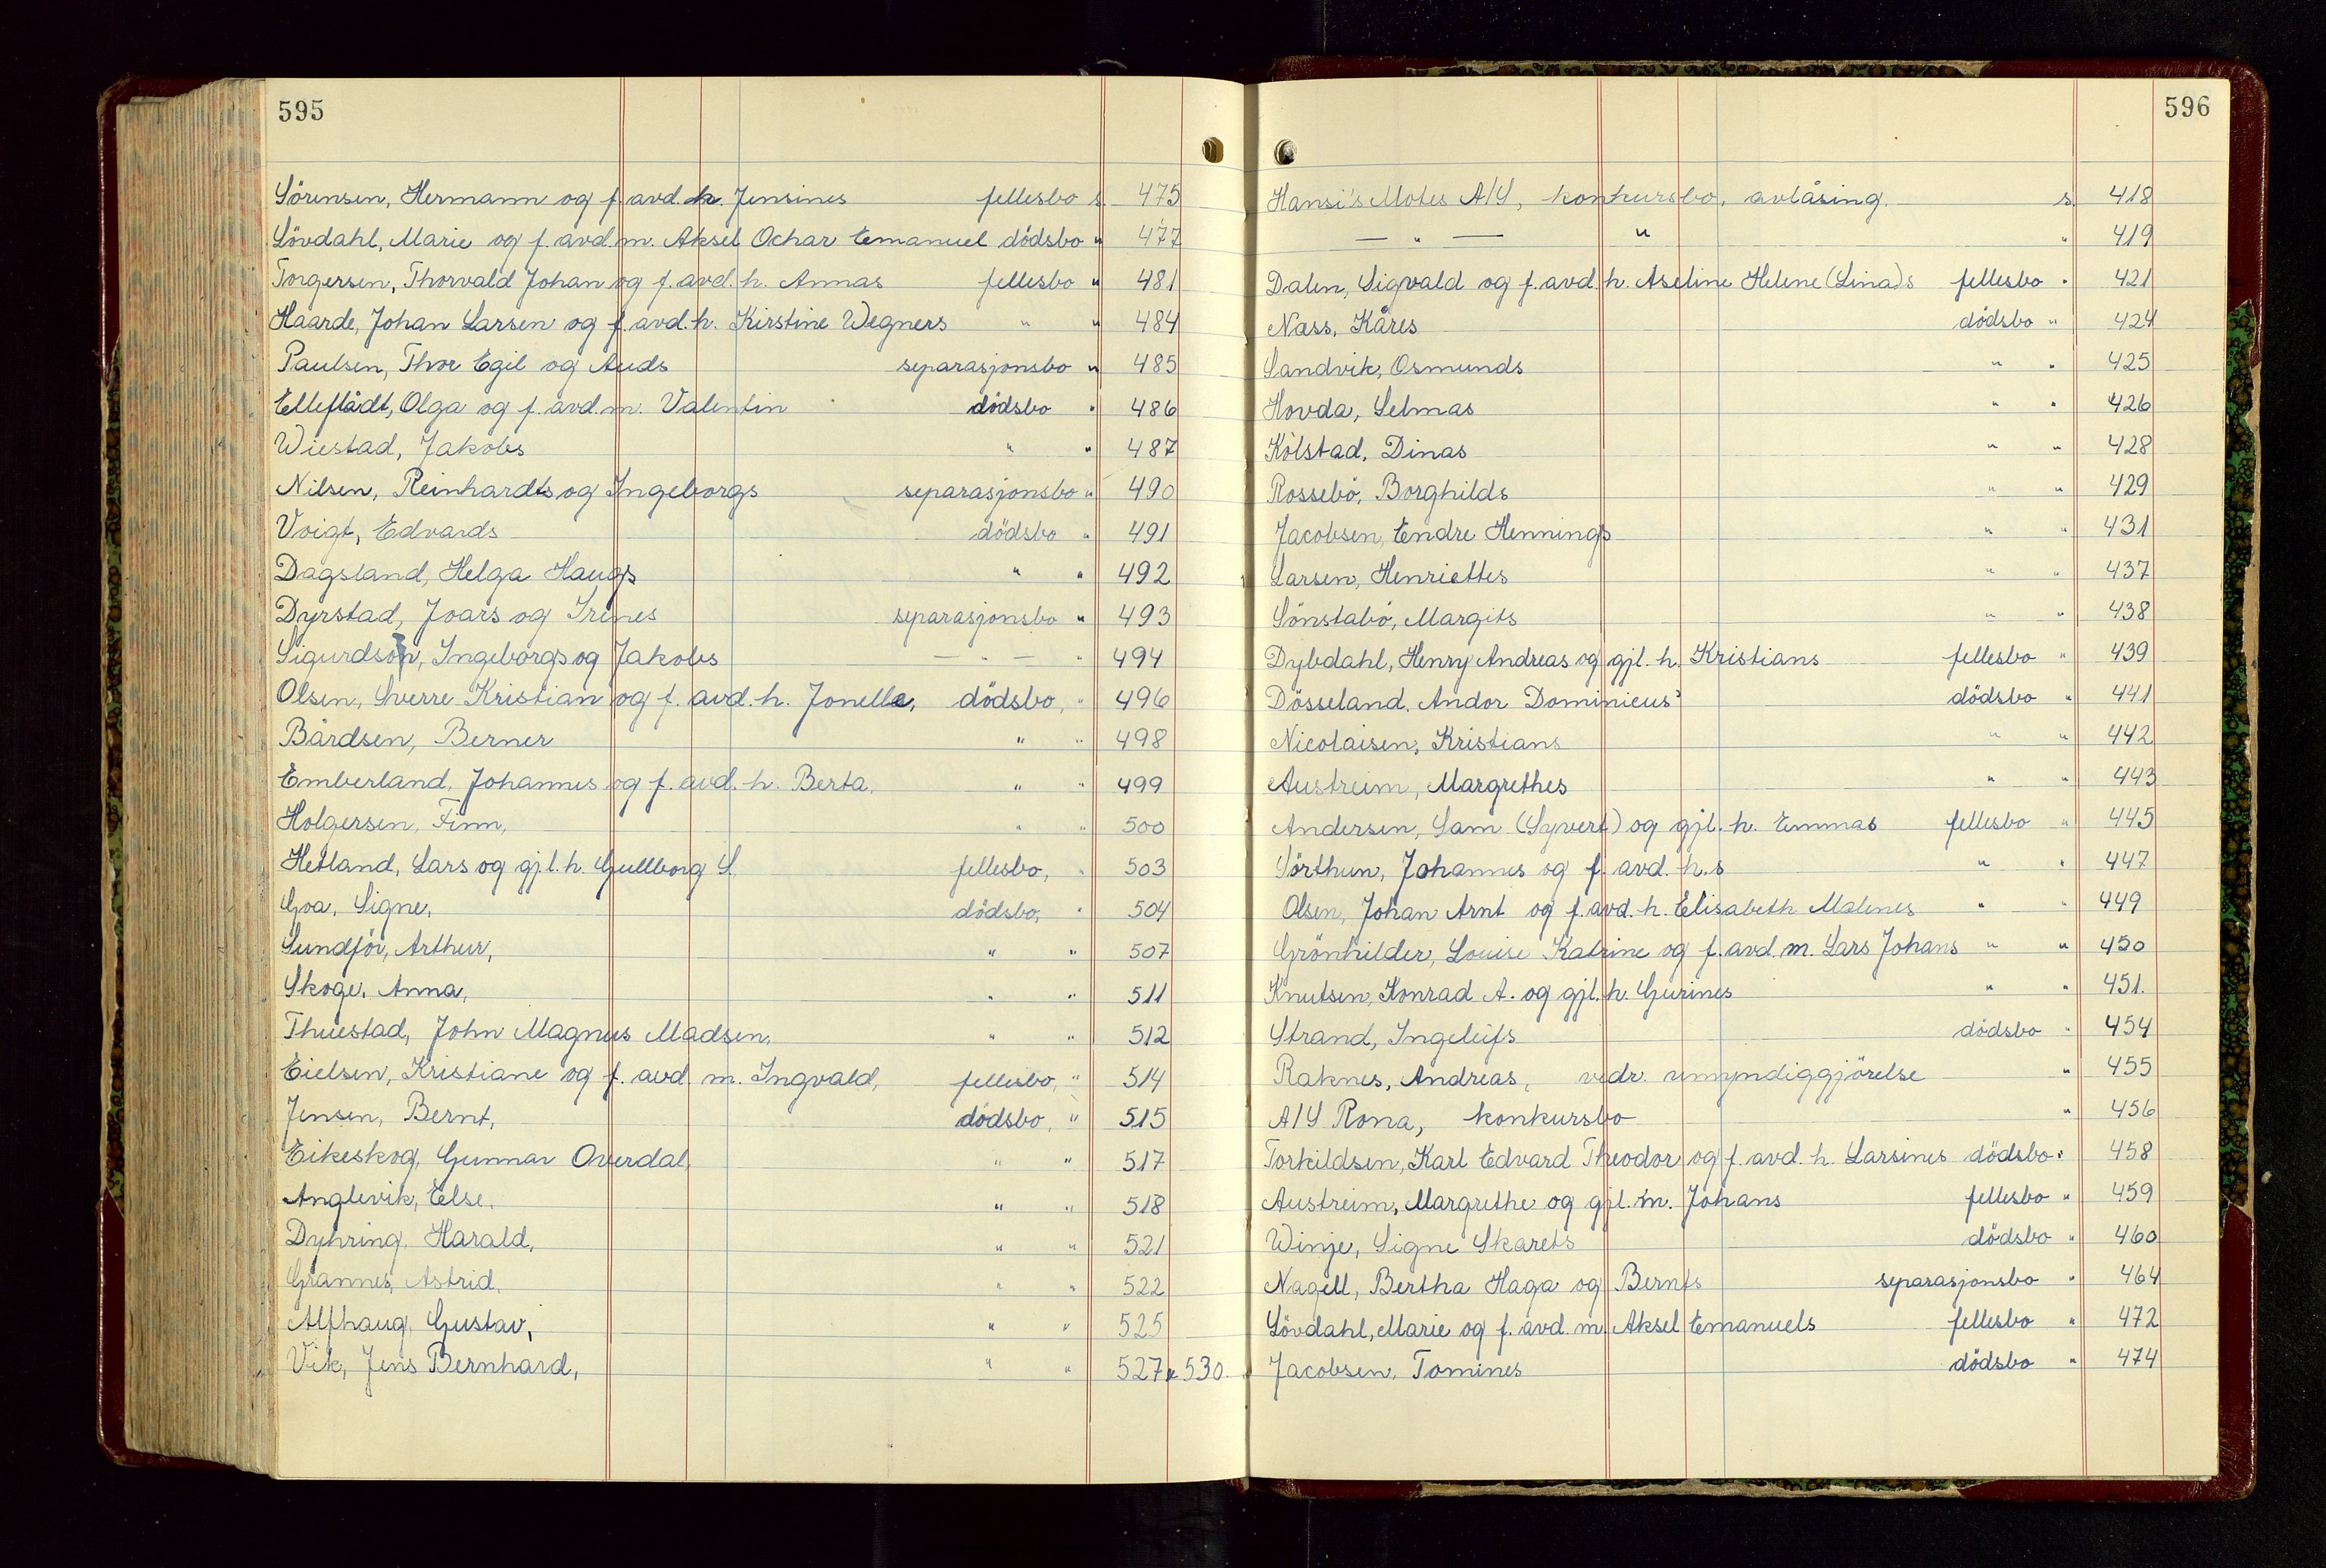 595
Sörensen, Hermann og f. avd. h. Jensines fellesbo s. 475
Lövdahl, Marie og f. avd. m. Aksel Ochar Emanuel dödsbo " 477
Torgersen, Thorvald Johan og f. avd. h. Annas fellesbo " 481
Haarde, Johan Larsen og f. avd. h. Kirstine Wegners " " 484
Paulsen, Thor Egil og Auds separasjonsbo " 485
Elleflådt, Olga og f. avd. m. Valentin dödsbo " 486
Wiestad, Jakobs " " 487
Nilsen, Reinhardts og Ingeborgs separasjonsbo " 490
Voigt, Edvards dödsbo " 491
Dagsland, Helga Haugs " " 492
Dyrstad, Joars og Irenes separasjonsbo " 493
Sigurdson, Ingeborgs og Jakobs — " — " 494
Olsen, Sverre Kristian og f. avd. h. Jonelle, dödsbo, " 496
Bårdsen, Berner " " 498
Emberland, Johannes og f. avd. h. Berta, " " 499
Holgersen, Finn, " " 500
Hetland, Lars og gjl. h. Gullborg S. fellesbo, " 503
Goa, Signe, dödsbo, " 504
Sundför, Arthur, " " 507
Skoge, Anna, " " 511
Thuestad, John Magnus Madsen, " " 512
Eielsen, Kristiane og f. avd. m. Ingvald, fellesbo, " 514
Jensen, Bernt, dödsbo, " 515
Eikeskog, Gunnar Overdal, " " 517
Anglevik, Else, " " 518
Dyhring, Harald, " " 521
Grannes, Astrid, " " 522
Alfhaug, Gustav, " " 525
Vik, Jens Bernhard, " " 527 x 530.
596
Hansi's Motes A/S, konkursbo, avlåsing. s. 418
— " — " " 419
Dalen, Sigvald og f. avd. h. Aseline Helene (Lina)s fellesbo " 421
Næss, Kåres dödsbo " 424
Sandvik, Osmunds " " 425
Hovda, Selmas " " 426
Kölstad, Dinas " " 428
Rossebö, Borghilds " " 429
Jacobsen, Endre Hennings " " 431
Larsen, Henriettes " " 437
Sönstabö, Margits " " 438
Dybdahl, Henry Andreas og gjl. h. Kristians fellesbo " 439
Dösseland, Andor Dominicus' dödsbo " 441
Nicolaisen, Kristians " " 442
Austreim, Margrethes " " 443
Andersen, Sam (Syvert) og gjl. h. Emmas fellesbo " 445
Sörthun, Johannes og f. avd. h.s " " 447
Olsen, Johan Arnt og f. avd. h. Elisabeth Malenes " " 449
Grönhilder, Louise Katrine og f. avd. m. Lars Johans " " 450
Knutsen, Konrad A. og gjl. h. Gurines " " 451.
Strand, Ingeleifs dödsbo " 454
Raknes, Andreas, vedr. umyndiggjörelse " 455
A/S Rona, konkursbo " 456
Torkildsen, Karl Edvard Theodor og f. avd. h. Larsines dödsbo " 458
Austreim, Margrethe og gjl. m. Johans fellesbo " 459
Winje, Signe Skarets dödsbo " 460
Nagell, Bertha Haga og Bernts separasjonsbo " 464
Lövdahl, Marie og f. avd. m. Aksel Emanuels fellesbo " 472
Jacobsen, Tomines dödsbo " 474